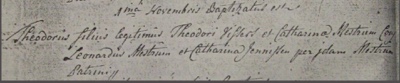 1ma Novembris Baptizatus est
Theodorus filius legitimus Theodori et Catharina Mestrum
Leonardus Mestrum et Catharina Jennissen per Mestrum
Patrini